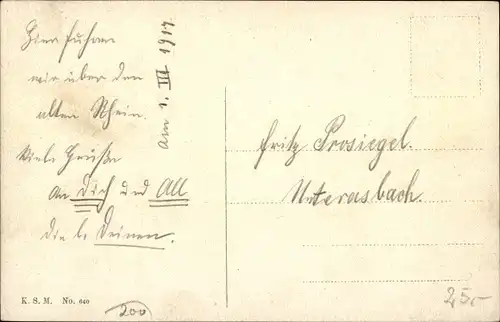 Hier fuhren
wir über den
alten Rhein.
Viele Grüße
An Dich und All
die l. Deinen.
Am 1. III 1917
Fritz Prosiegel.
Unterasbach.
K. S. M. No. 640
200
250-